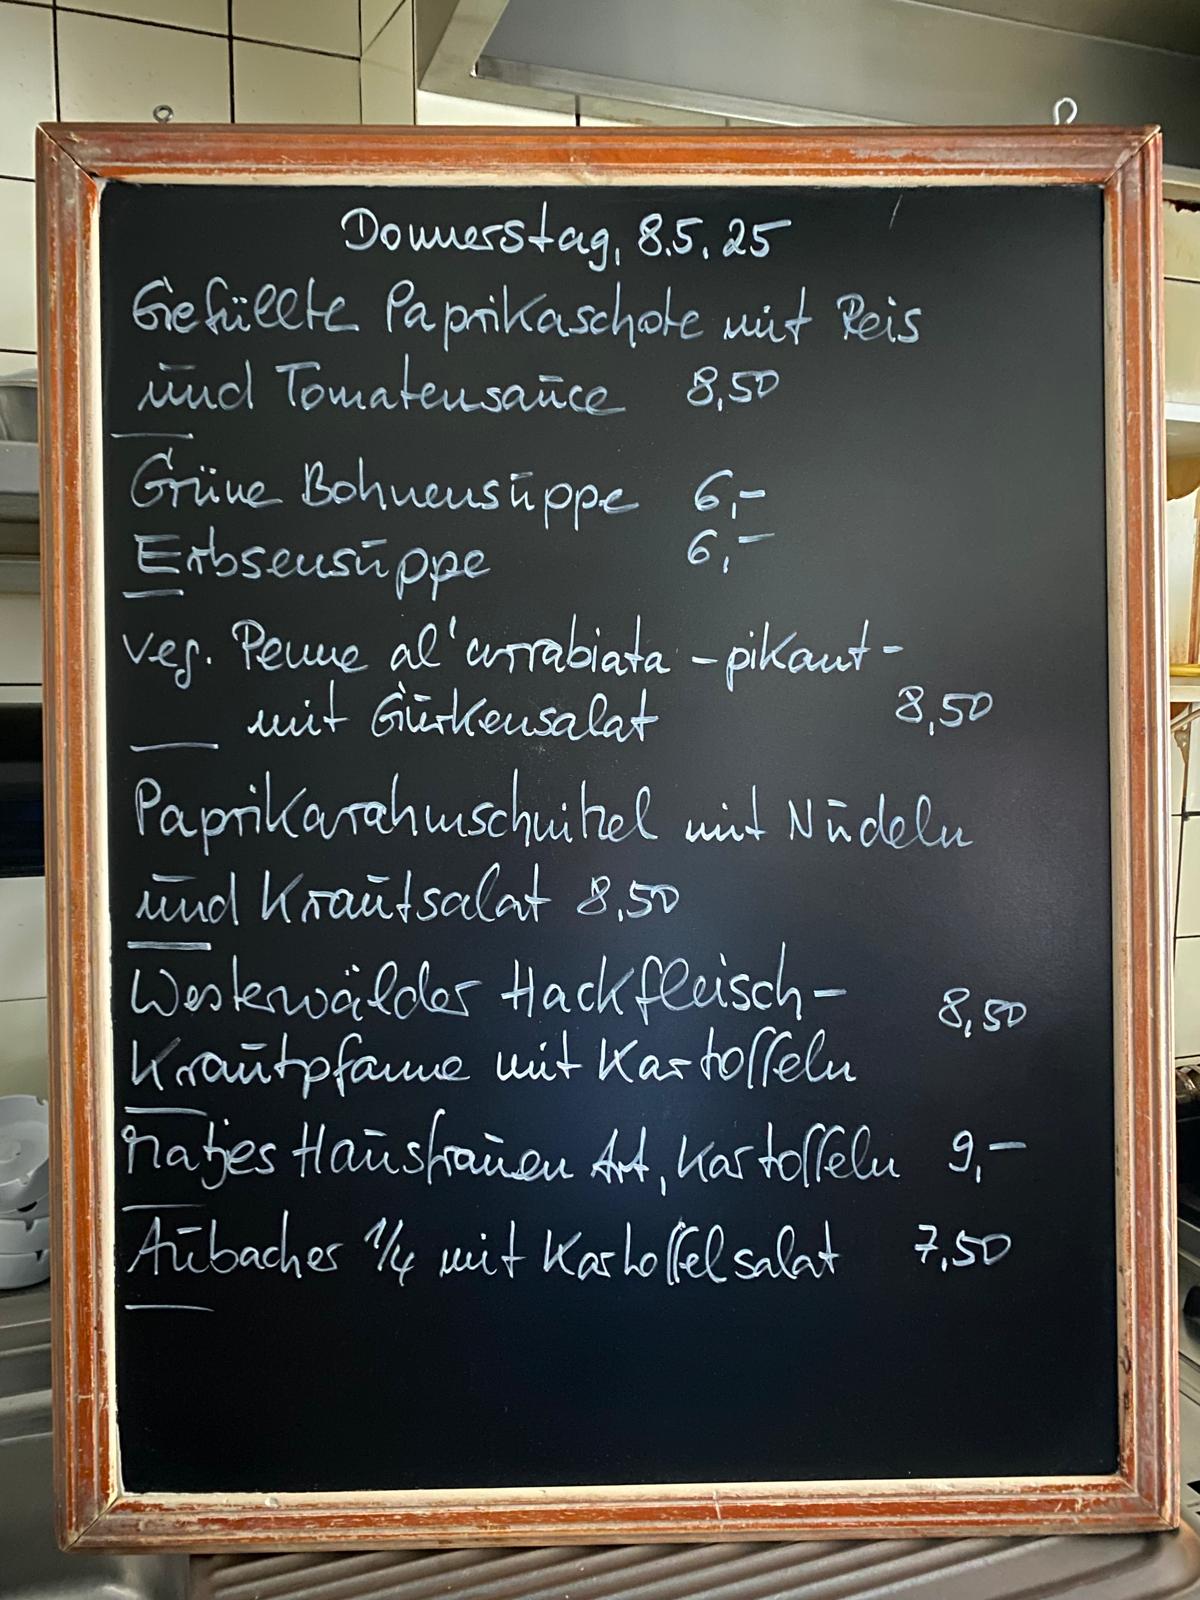 Donnerstag, 8.5.25
Gefüllte Paprikaschote mit Reis
und Tomatensauce 8,50
Grüne Bohnensuppe 6,-
Erbsensuppe 6,-
veg. Penne al'arrabiata - pikant -
mit Gurkensalat 8,50
Paprikarahmschnitzel mit Nudeln
und Krautsalat 8,50
Westerwälder Hackfleisch- 8,50
Krautpfanne mit Kartoffeln
Matjes Hausfrauen Art, Kartoffeln 9,-
Aubacher 1/4 mit Kartoffelsalat 7,50